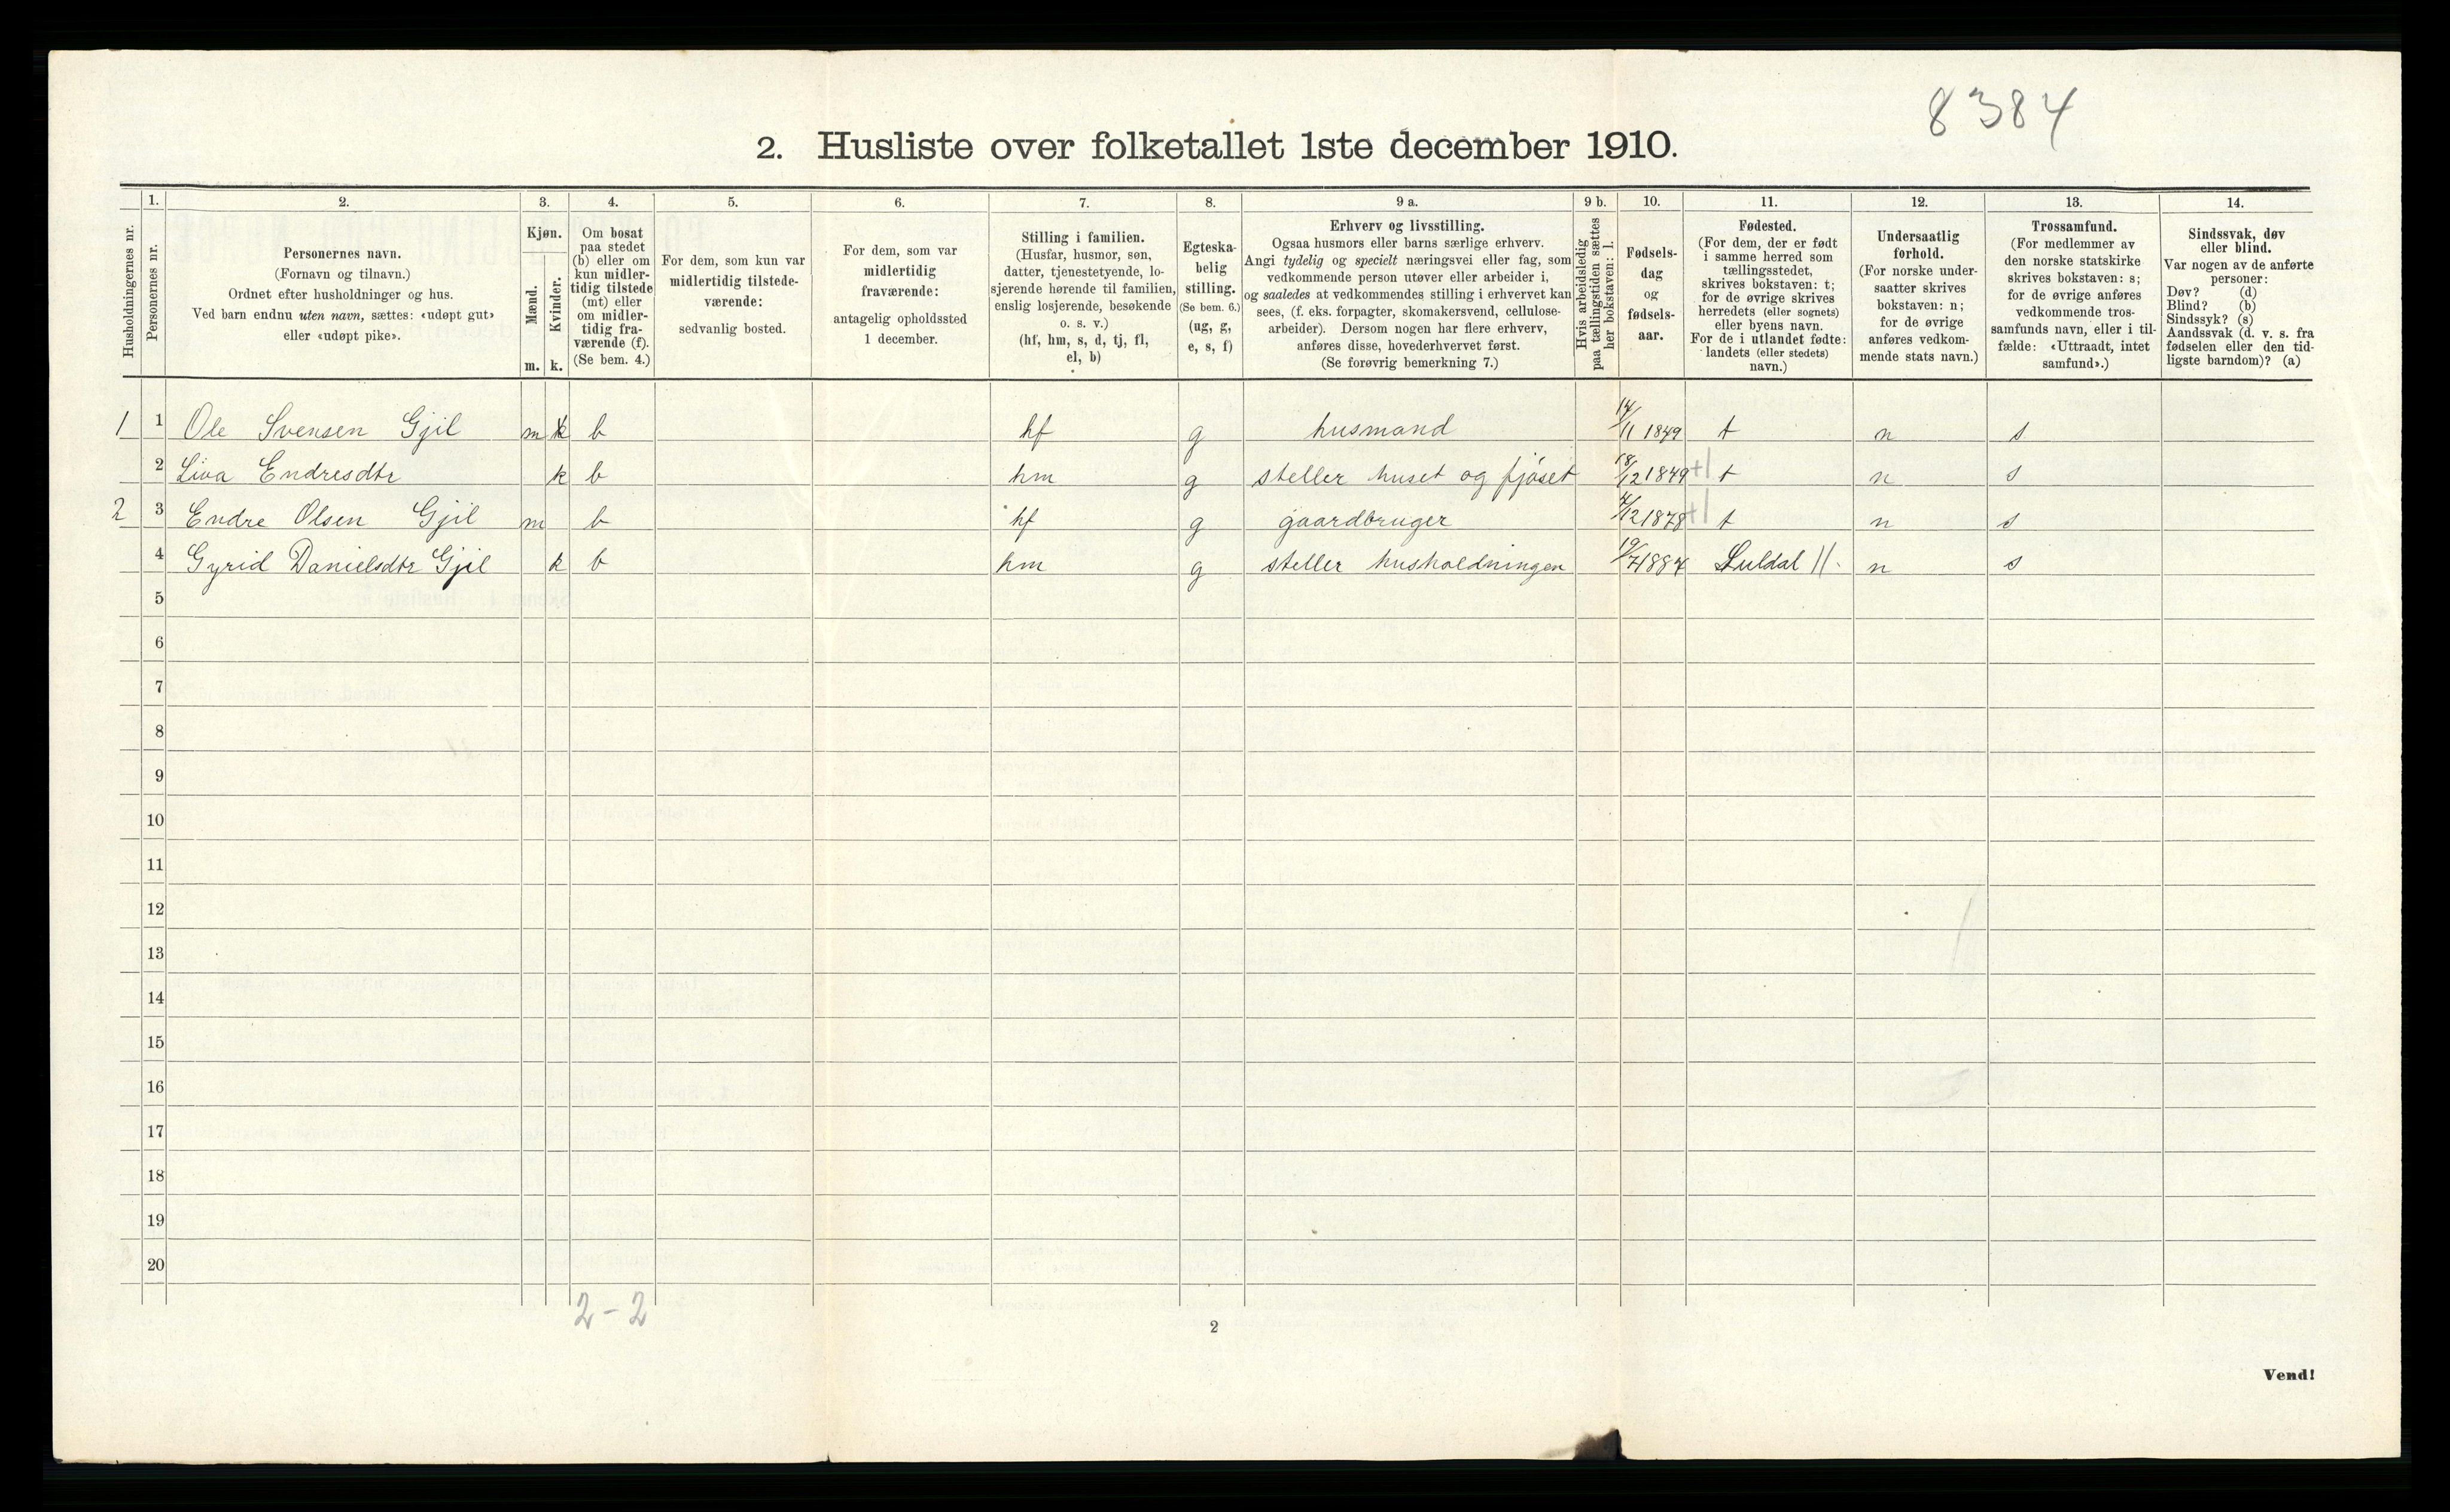 8384
2. Husliste over folketallet 1ste december 1910.
Husholdningernes nr.
1.
Personernes nr.
2.
Personernes navn.
(Fornavn og tilnavn.)
Ordnet efter husholdninger og hus.
Ved barn endnu uten navn, sættes: «udøpt gut»
eller «udøpt pike».
3.
Kjøn.
Mænd.
m.
Kvinder.
k.
4.
Om bosat
paa stedet
(b) eller om
kun midler-
tidig tilstede
(mt) eller
om midler-
tidig fra-
værende (f).
(Se bem. 4.)
5.
For dem, som kun var
midlertidig tilstede-
værende:
sedvanlig bosted.
6.
For dem, som var
midlertidig
fraværende:
antagelig opholdssted
1 december.
7.
Stilling i familien.
(Husfar, husmor, søn,
datter, tjenestetyende, lo-
sjerende hørende til familien,
enslig losjerende, besøkende
o. s. v.)
(hf, hm, s, d, tj, fl,
el, b)
8.
Egteska-
belig
stilling.
(Se bem. 6.)
(ug, g,
e, s, f)
9 a.
Erhverv og livsstilling.
Ogsaa husmors eller barns særlige erhverv.
Angi tydelig og specielt næringsvei eller fag, som
vedkommende person utøver eller arbeider i,
og saaledes at vedkommendes stilling i erhvervet kan
sees, (f. eks. forpagter, skomakersvend, cellulose-
arbeider). Dersom nogen har flere erhverv,
anføres disse, hovederhvervet først.
(Se forøvrig bemerkning 7.)
9 b.
Hvis arbeidsledig
paa tællingstiden sættes
her bokstaven: l.
10.
Fødsels-
dag
og
fødsels-
aar.
11.
Fødested.
(For dem, der er født
i samme herred som
tællingsstedet,
skrives bokstaven: t;
for de øvrige skrives
herredets (eller sognets)
eller byens navn.
For de i utlandet fødte:
landets (eller stedets)
navn.)
12.
Undersaatlig
forhold.
(For norske under-
saatter skrives
bokstaven: n;
for de øvrige
anføres vedkom-
mende stats navn.)
13.
Trossamfund.
(For medlemmer av
den norske statskirke
skrives bokstaven: s;
for de øvrige anføres
vedkommende tros-
samfunds navn, eller i til-
fælde: «Uttraadt, intet
samfund».)
14.
Sindssvak, døv
eller blind.
Var nogen av de anførte
personer:
Døv? (d)
Blind? (b)
Sindssyk? (s)
Aandssvak (d. v. s. fra
fødselen eller den tid-
ligste barndom)? (a)
1 1 Ole Svensen Gjil m k b hf g husmand 14/11 1849 t n s
2 Liva Endresdtr k b hm g steller huset og fjøset 18/12 1849 +1 t n s
2 3 Endre Olsen Gjil m b hf g gaardbruger 4/12 1878 +1 t n s
4 Gyrid Danielsdtr Gjil k b hm g steller husholdningen 19/7 1884 Suldal 11. n s
5
6
7
8
9
10
11
12
13
14
15
16
17
18
19
20
2-2
2
Vend!